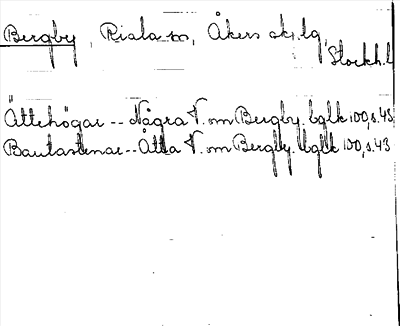 Bergby, Riala sn, Åkers skg.lg,
Stockh.l
Ättehögar -- Några V. om Bergby. bglk 100, s.43
Bautastenar -- Åtta V. om Bergby. bglk 100, s.43